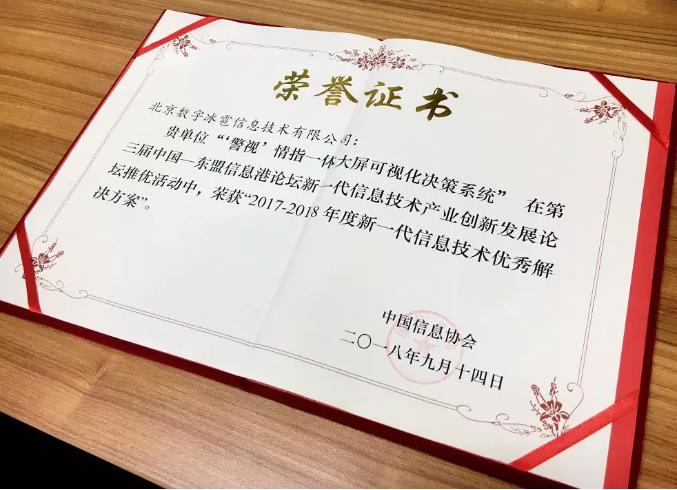 荣誉证书
北京数字冰雹信息技术有限公司：
贵单位“‘警视’情指一体大屏可视化决策系统” 在第
三届中国—东盟信息港论坛新一代信息技术产业创新发展论
坛推优活动中，荣获“2017-2018年度新一代信息技术优秀解
决方案”。
中国信息协会
二〇一八年九月十四日